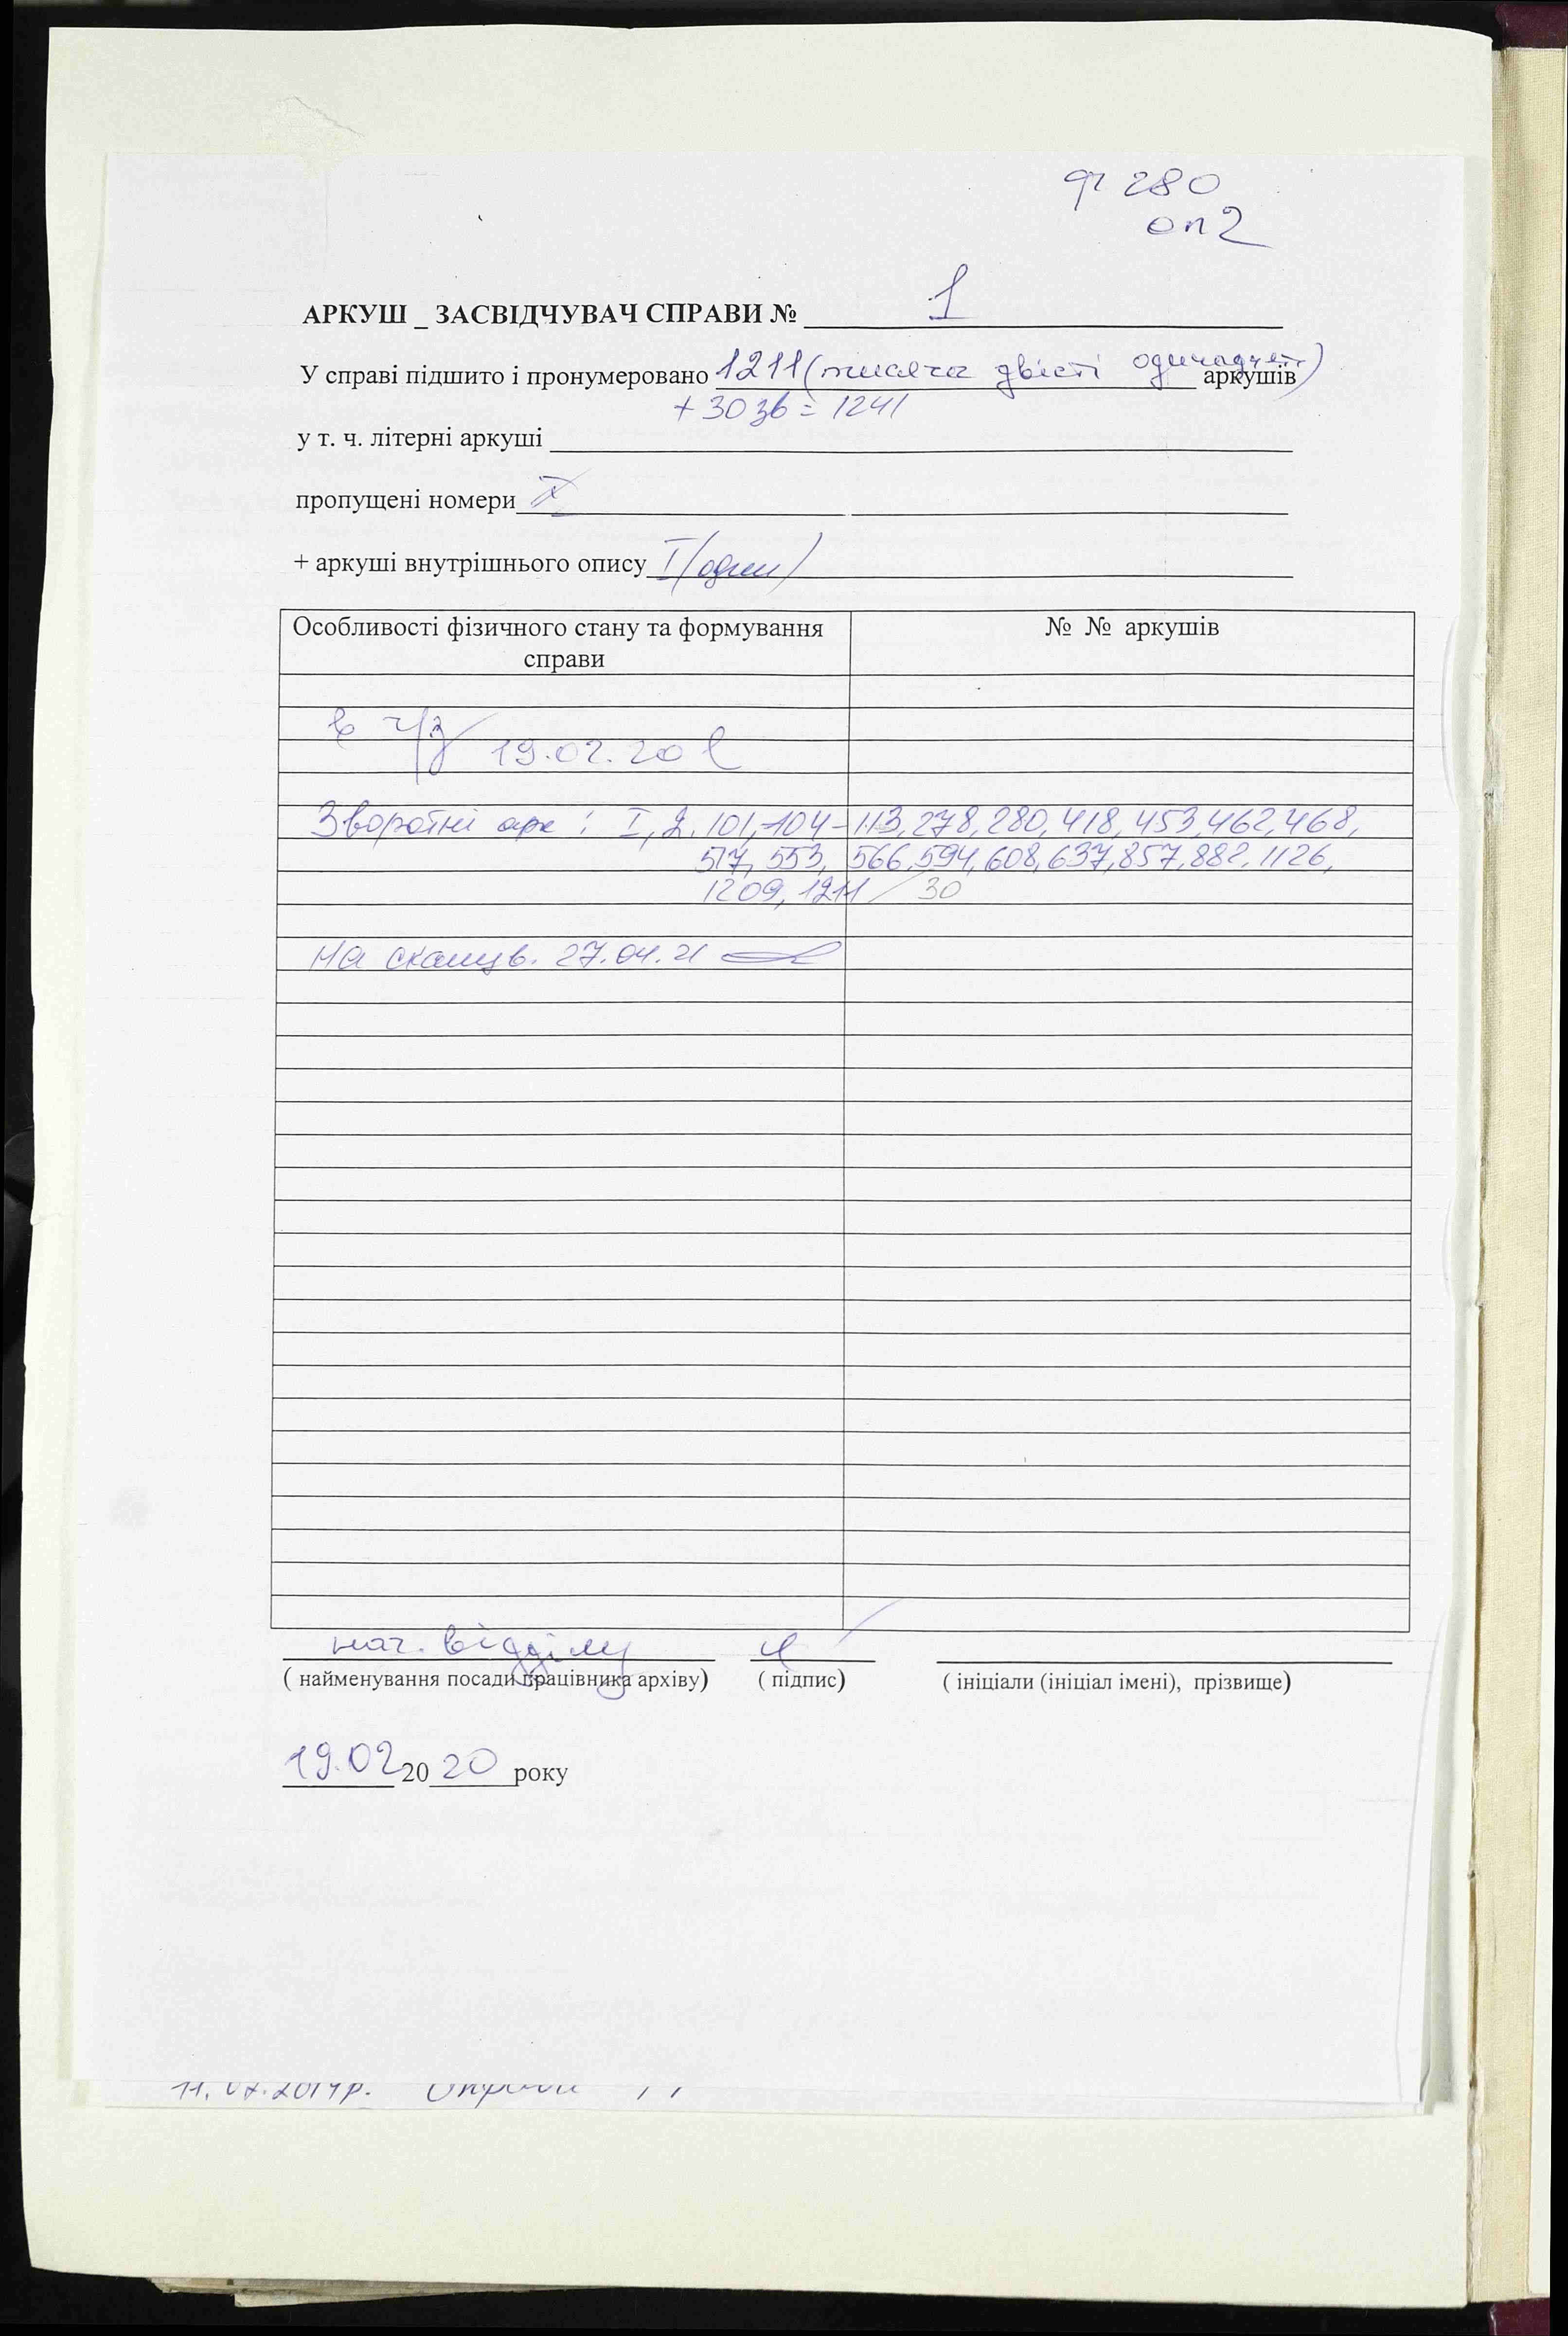 ф 280
оп 2
АРКУШ _ ЗАСВІДЧУВАЧ СПРАВИ № 1
У справі підшито і пронумеровано 1211 (тисяча двісті одинадцять) аркушів
+ 30 зв = 1241
у т. ч. літерні аркуші
пропущені номери
+ аркуші внутрішнього опису I (один)
Особливості фізичного стану та формування справи № № аркушів
в ч/з 19.02.20
Зворотні арк : I, 2, 101, 104-113, 278, 280, 418, 453, 462, 468,
517, 553, 566, 594, 608, 637, 857, 882, 1126,
1209, 1211 / 30
На сканув. 27.04.21
нач. відділу
( найменування посади працівника архіву) ( підпис) ( ініціали (ініціал імені), прізвище)
19.02 2020 року
11.07.2014р.